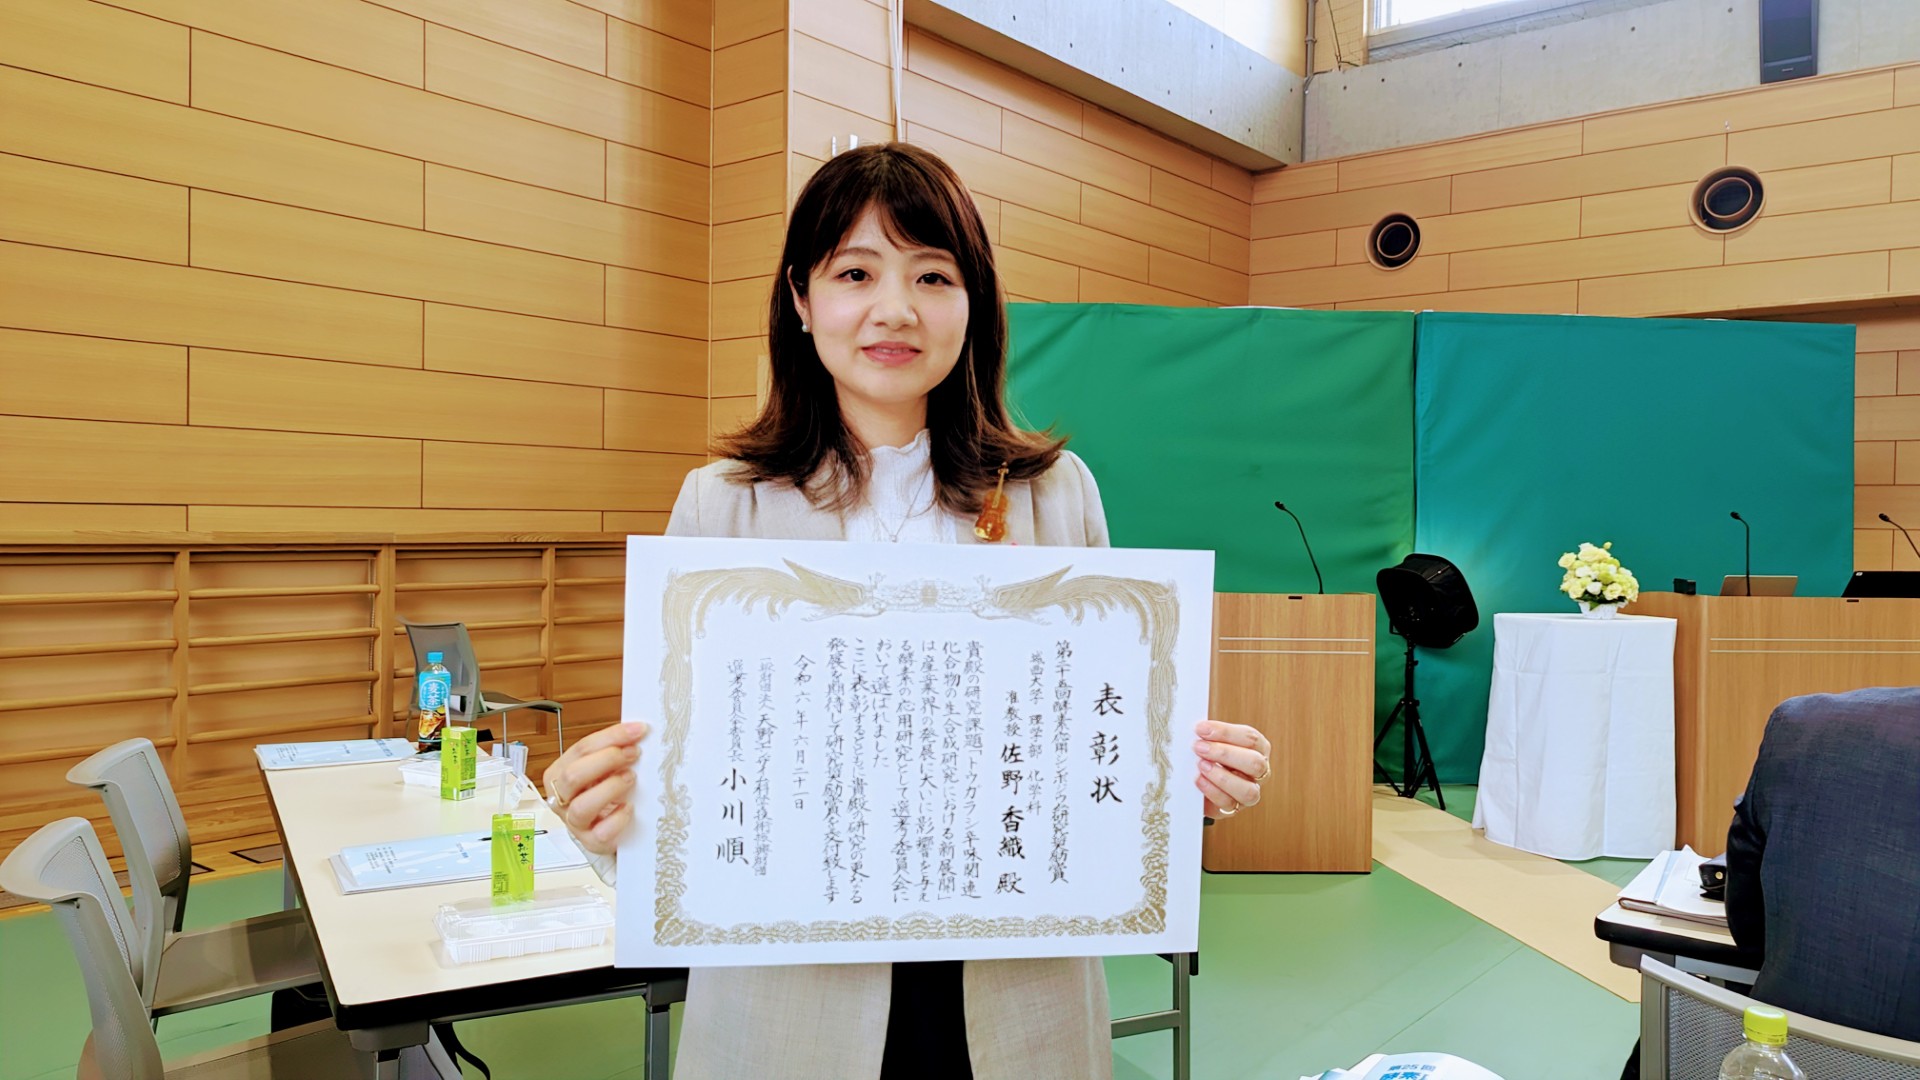 表彰状
第二十五回酵素応用シンポジウム研究奨励賞
城西大学 理学部 化学科
准教授 佐野香織殿
貴殿の研究課題「トウガラシ辛味関連
化合物の生合成研究における新展開」
は産業界の発展に大いに影響を与え
る酵素の応用研究として選考委員会に
おいて選ばれました
ここに表彰するとともに貴殿の研究の更なる
発展を期待して研究奨励賞を交付致します
令和六年六月二十一日
一般財団法人 天野エンザイム科学技術振興財団
選考委員会委員長 小川順
麦茶
お茶
第25回
酵素